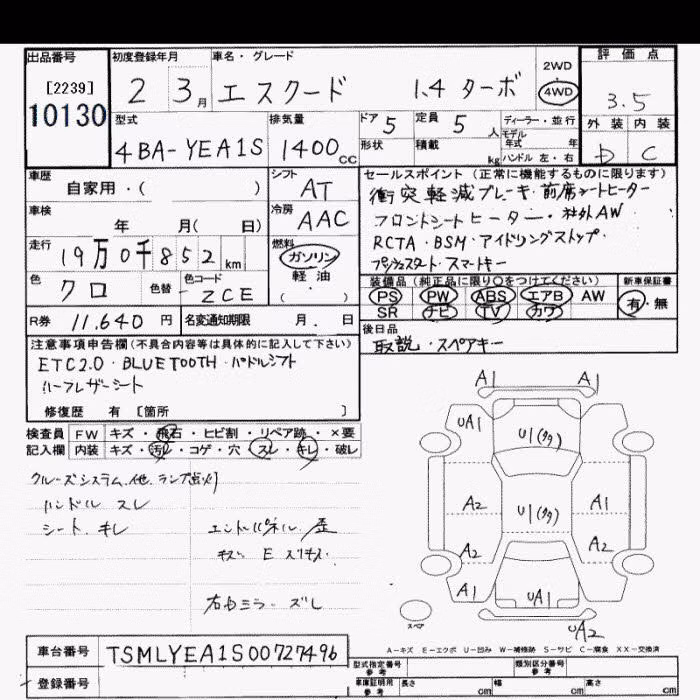 出品番号 初度登録年月 車名・グレード 評価点
[2239] 10130
2 3月 エスクード 1.4ターボ 2WD 4WD
3.5
外装 内装
D C
型式 4BA-YEA1S
排気量 1400cc
ドア 5 定員 5人
形状 積載 kg
ディーラー・並行
モデル年式 年
ハンドル 左・右
車歴 自家用・( )
シフト AT
車検 年 月(日)
冷房 AAC
走行 19万0千852km
燃料 ガソリン 軽油・( )
色 クロ 色替 色コード ZCE
R券 11,640円 名変通知期限 月.日
セールスポイント(正常に機能するものに限ります)
衝突軽減ブレーキ・前席シートヒーター
フロントシートヒーター・社外AW
RCTA・BSM・アイドリングストップ・
プッシュスタート・スマートキー
装備品(純正品に限り○をつけてください) 新車保証書
PS PW ABS エアB AW 有・無
SR ナビ TV カワ
後日品
取説・スペアキー
注意事項申告欄(不具合内容等は具体的に記入して下さい)
ETC2.0・BLUETOOTH・パドルシフト
ハーフレザーシート
修復歴 有 [箇所 ]
検査員 FW キズ・飛石・ヒビ割・リペア跡・×要
記入欄 内装 キズ・汚レ・コゲ・穴・スレ・キレ・破レ
クルーズシステム.他.ランプ点灯
ハンドル スレ
シート.キレ
エンドパネル.歪
キズ E スリキズ
右白ミラー ズレ
A1 A1
UA1
U1(タタ)
A2 U1(タタ) A1
A2 A2
A1 UA1
スペア
UA2
A-キズ E-エクボ U-凹み W-補修跡 S-サビ C-腐食 XX-交換済
車台番号 TSMLYEA1S00727496
登録番号
型式指定番号 参考 類別区分番号 参考
車庫証明用 参考 長さ cm 幅 cm 高さ cm